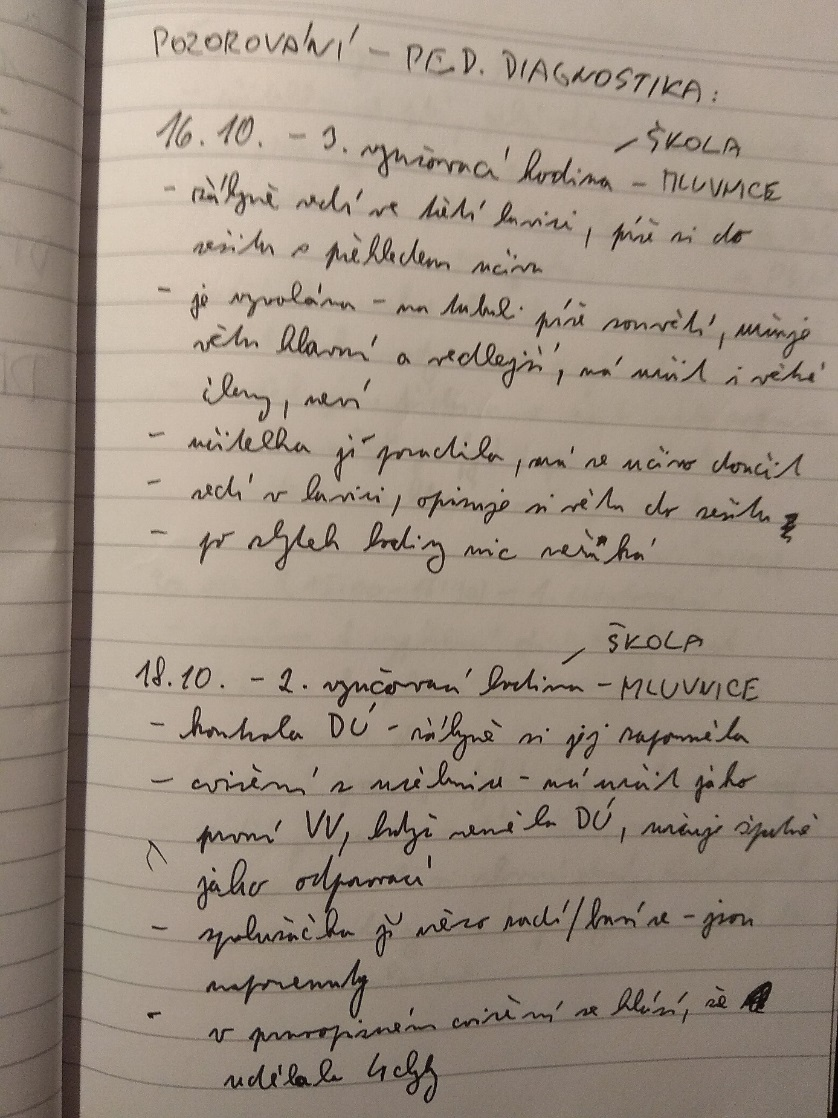 POZOROVÁNÍ – PED. DIAGNOSTIKA:
16.10. – 3. vyučovací hodina – MLUVNICE
ŠKOLA
- žákyně sedí ve třetí lavici, píše si do
sešitu s přehledem učiva
- je vyvolána – na tabuli píše souvětí, určuje
větu hlavní a vedlejší, má určit i větné
členy, neví
- učitelka jí poradila, má se učivo doučit
- sedí v lavici, opisuje si větu do sešitu
- po zbytek hodiny nic neříká
ŠKOLA
18.10. – 2. vyučovací hodina – MLUVNICE
- kontrola DÚ – žákyně si jej zapomněla
- cvičení z učebnice – má určit jako
první VV, když neměla DÚ, určuje špatně
jako odporovací
- spolužačka jí něco radí/baví se – jsou
napomenuty
- v pravopisném cvičení se hlásí, že
udělala 4 chyby